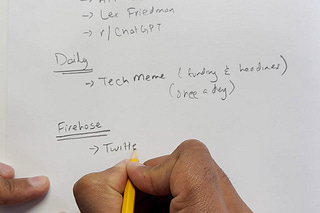 → Lex Friedman
→ r/ChatGPT
Daily
→ Techmeme (funding & headlines)
(once a day)
Firehose
→ Twitte